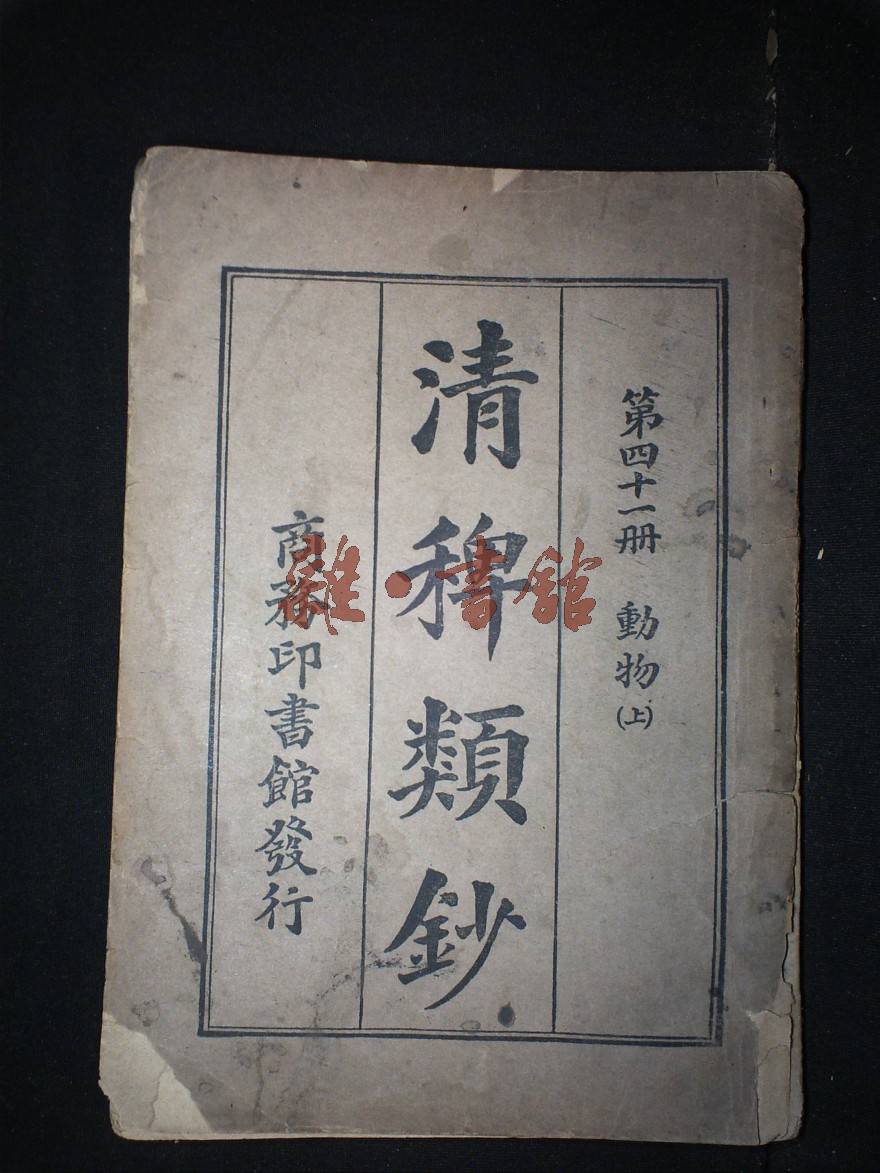 第四十一册 動物(上)
清稗類鈔
商務印書館發行
雜·書館